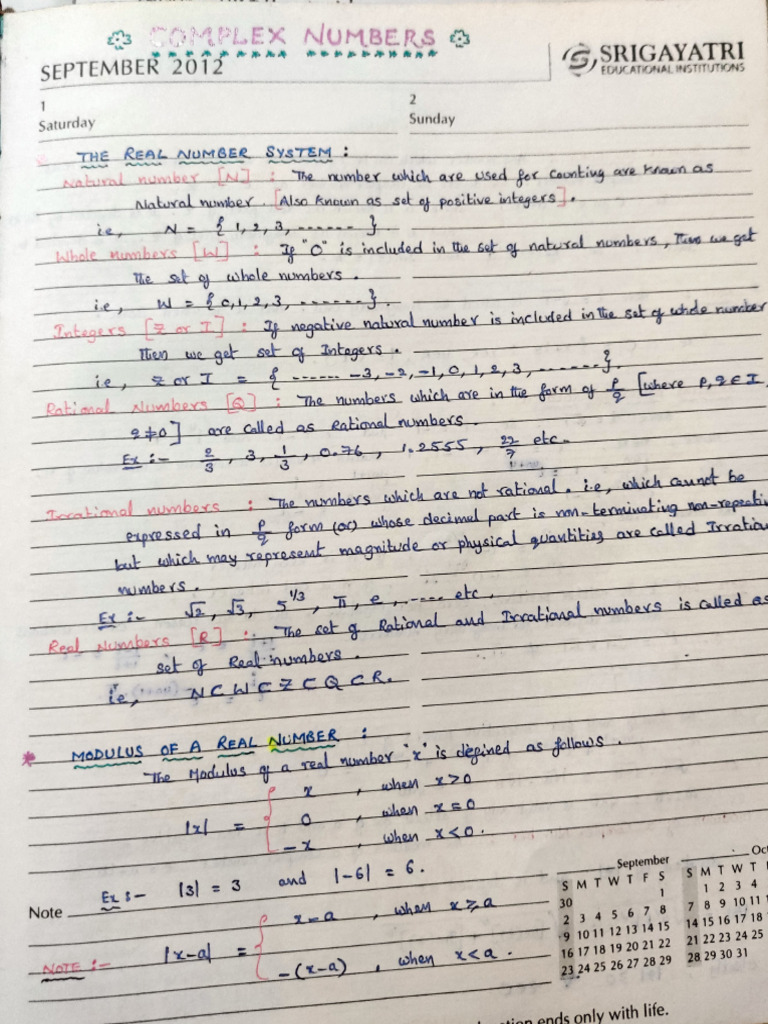 COMPLEX NUMBERS
SEPTEMBER 2012
SRIGAYATRI
EDUCATIONAL INSTITUTIONS
1
Saturday
2
Sunday
THE REAL NUMBER SYSTEM :
Natural number [N] : The number which are used for counting are known as
Natural number. [Also known as set of positive integers].
i.e, N = { 1, 2, 3, ------- }.
Whole Numbers [W] : If "0" is included in the set of natural numbers, Then we get
the set of whole numbers.
i.e, W = { 0, 1, 2, 3, ------- }.
Integers [Z or I] : If negative natural number is included in the set of whole number
Then we get set of Integers.
i.e, Z or I = { ------ -3, -2, -1, 0, 1, 2, 3, ------- }.
Rational Numbers [Q] : The numbers which are in the form of p/q [where p, q ∈ I,
q ≠ 0] are called as Rational numbers.
Ex :- 2/3, 3, 1/3, 0.76, 1.2555, 22/7 etc.
Irrational numbers : The numbers which are not rational. i.e, which cannot be
expressed in p/q form (or) whose decimal part is non-terminating non-repeati
but which may represent magnitude or physical quantities are called Irratio
numbers.
Ex :- √2, √3, 5^1/3, π, e, ----- etc.
Real Numbers [R] : The set of Rational and Irrational numbers is called as
set of Real numbers.
i.e, N ⊂ W ⊂ Z ⊂ Q ⊂ R.
* MODULUS OF A REAL NUMBER :
The Modulus of a real number 'x' is defined as follows.
|x| = { x, when x > 0
0, when x = 0
-x, when x < 0.
Ex :- |3| = 3 and |-6| = 6.
Note
NOTE :- |x-a| = { x-a, when x ≥ a
-(x-a), when x < a.
September
S M T W T F S
30 1
2 3 4 5 6 7 8
9 10 11 12 13 14 15
16 17 18 19 20 21 22
23 24 25 26 27 28 29
Oc
S M T W T
1 2 3 4
7 8 9 10 11
14 15 16 17 18
21 22 23 24 25
28 29 30 31
ends only with life.